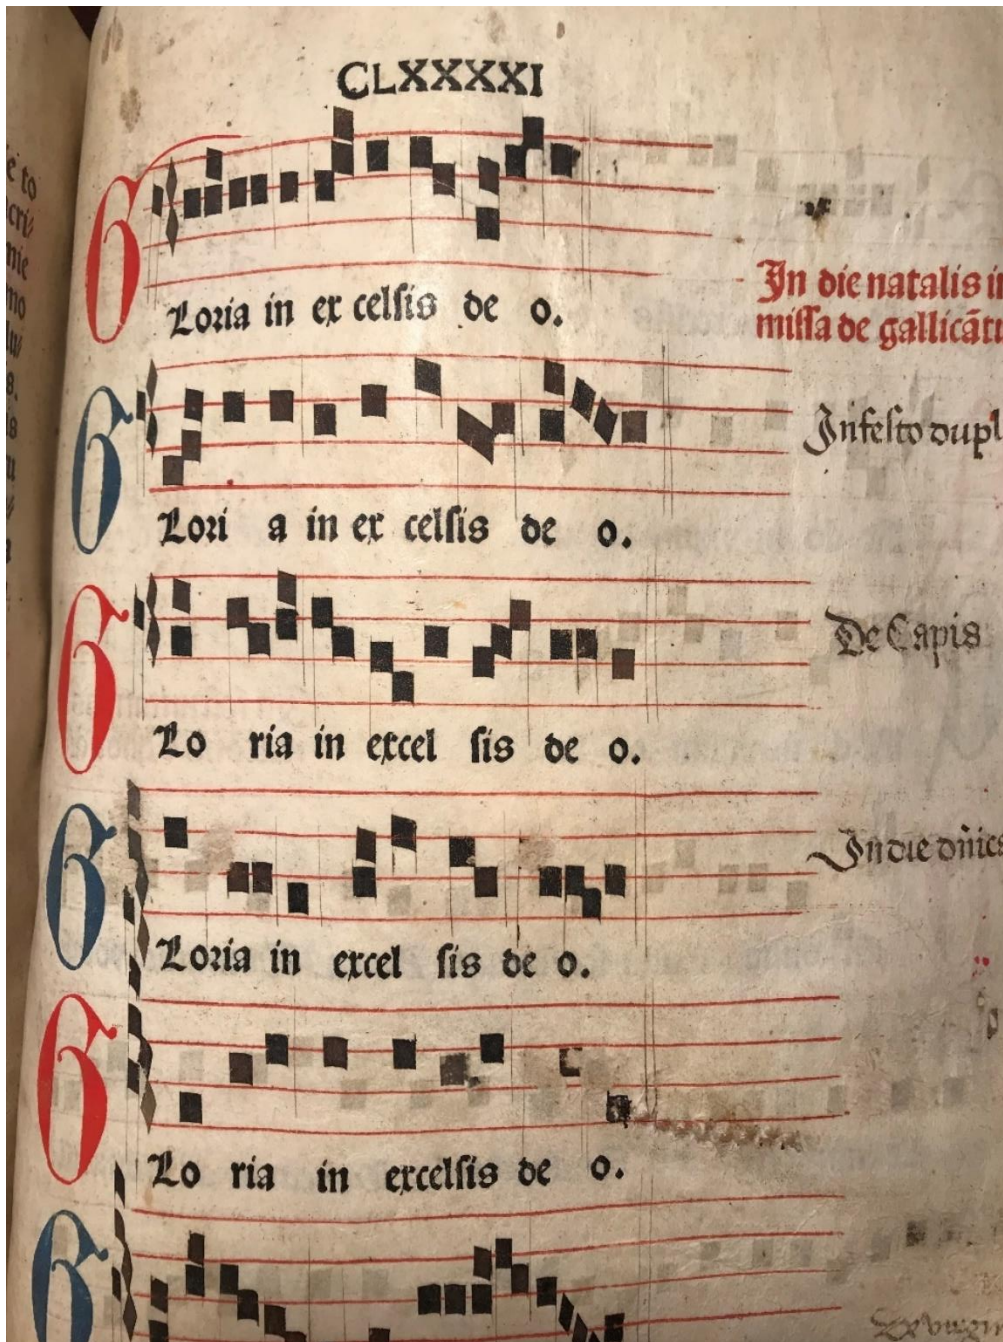 CLXXXXI
Gloria in ex celsis de o.
In die natalis in
missa de gallicãtu
Glori a in ex celsis de o.
In festo dupl
Glo ria in excel sis de o.
De Capis
Gloria in excel sis de o.
In die dñics
Glo ria in excelsis de o.
G